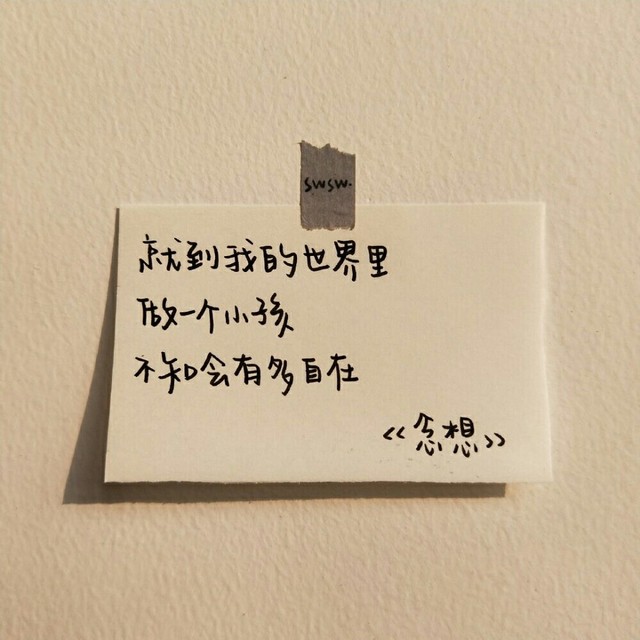 swsw.
就到我的世界里
做一个小孩
不知会有多自在
<<念想>>